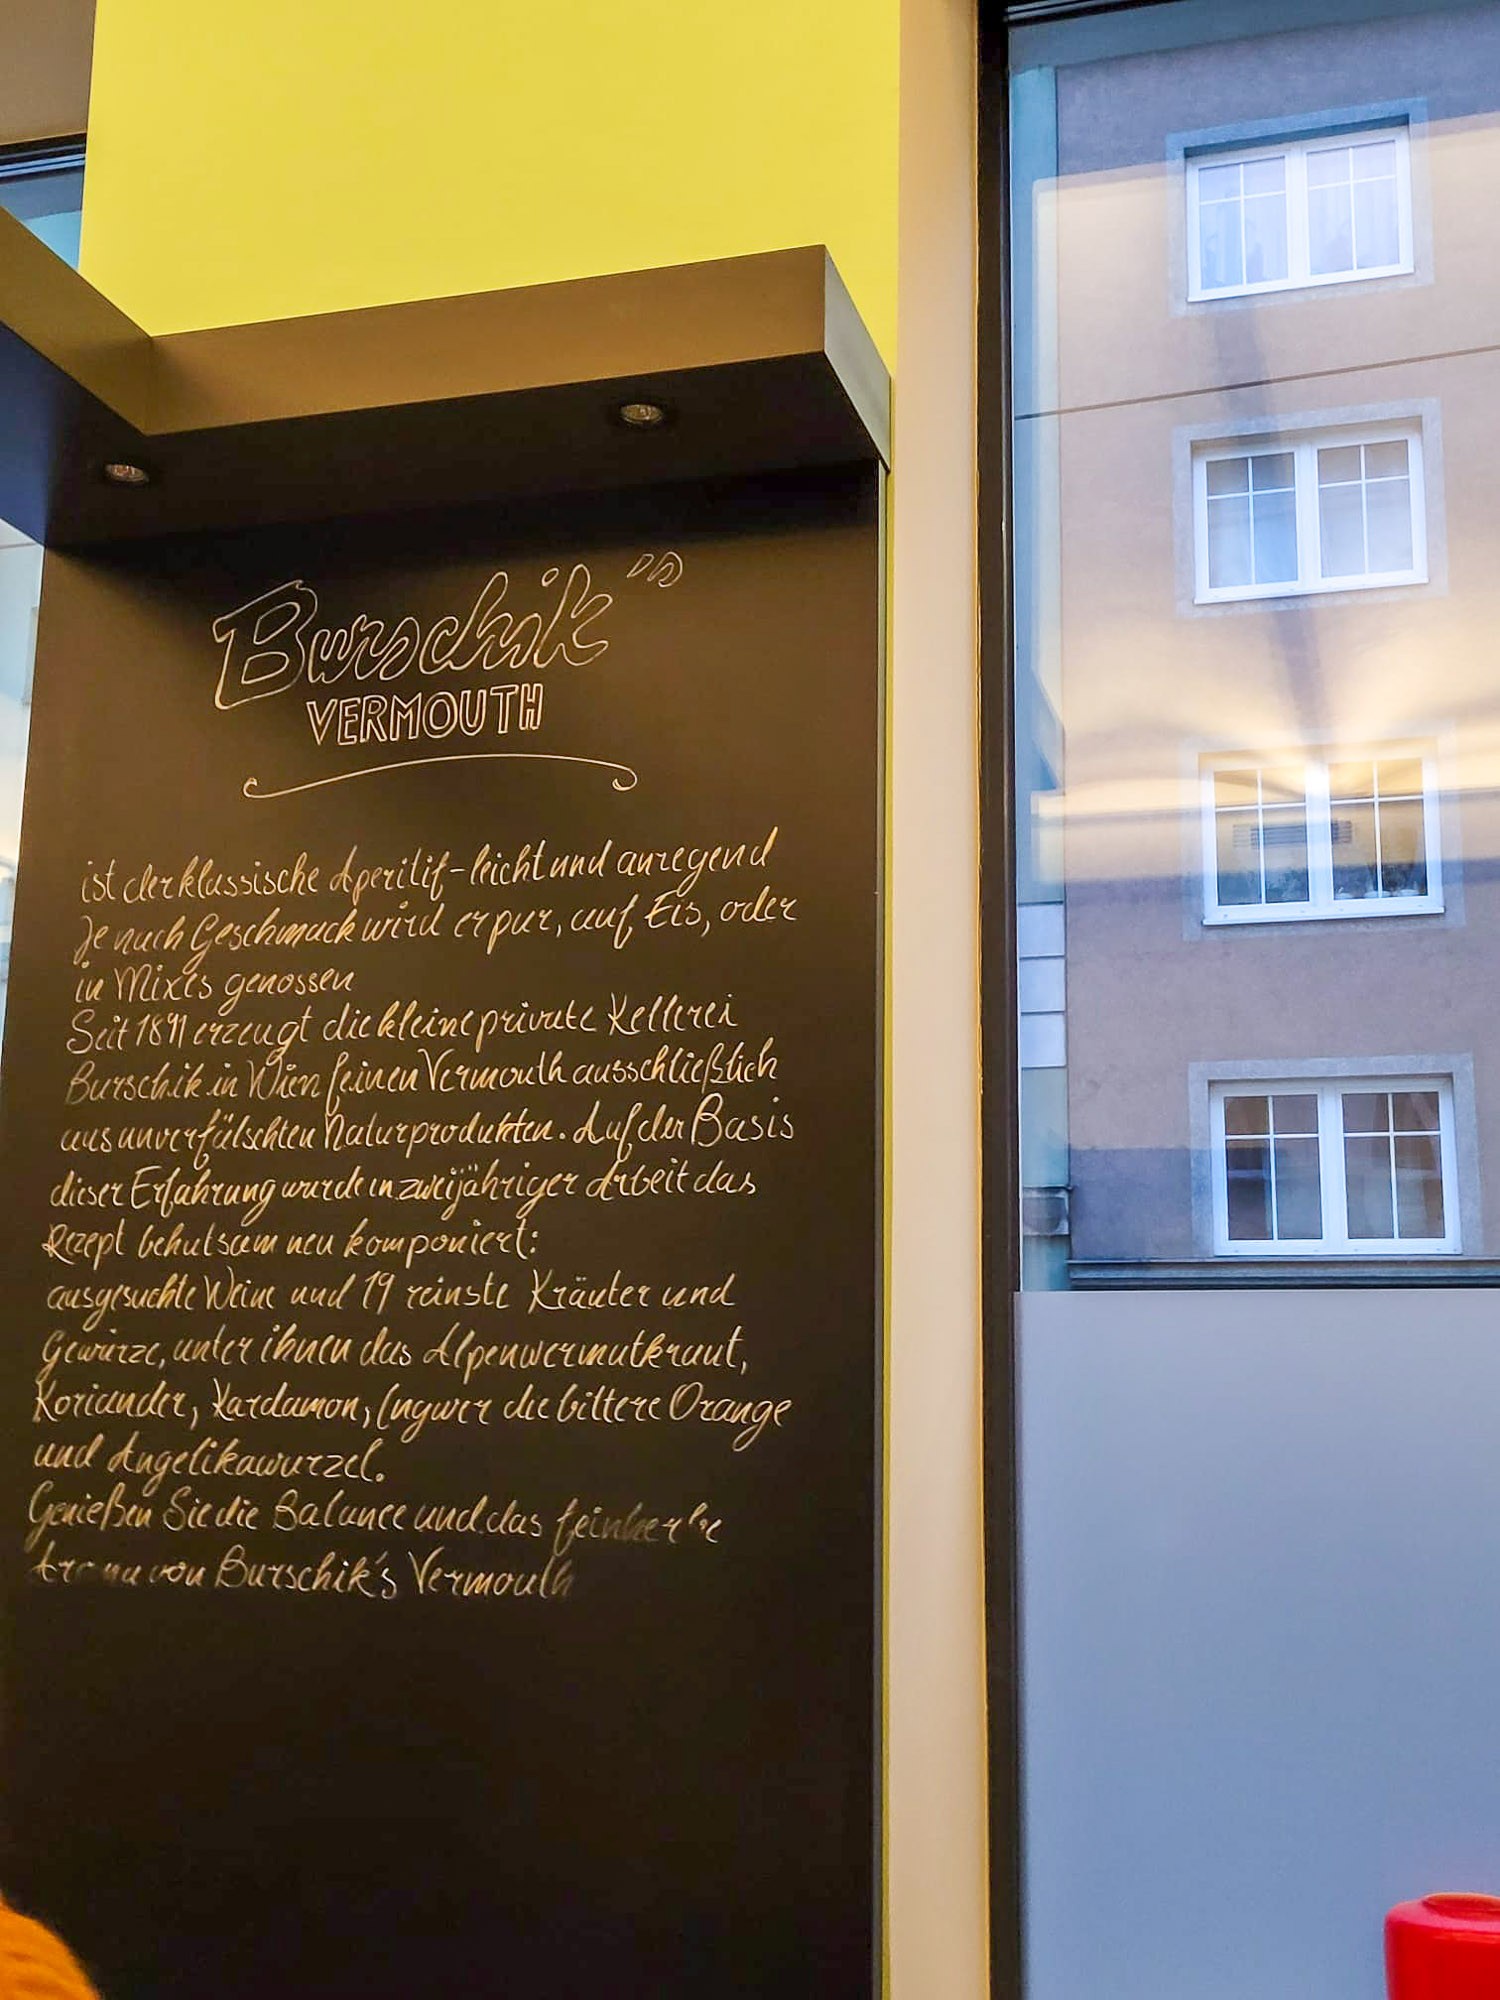 Burschik's
VERMOUTH
ist der klassische Aperitif - leicht und anregend
Je nach Geschmack wird er pur, auf Eis, oder
in Mixes genossen
Seit 1891 erzeugt die kleine private Kellerei
Burschik in Wien feinen Vermouth ausschließlich
aus unverfälschten Naturprodukten. Auf der Basis
dieser Erfahrung wurde in zweijähriger Arbeit das
Rezept behutsam neu komponiert:
ausgesuchte Weine und 19 reinste Kräuter und
Gewürze, unter ihnen das Alpenwermutkraut,
Koriander, Kardamon, Ingwer die bittere Orange
und Angelikawurzel.
Genießen Sie die Balance und das feinherbe
Aroma von Burschik's Vermouth